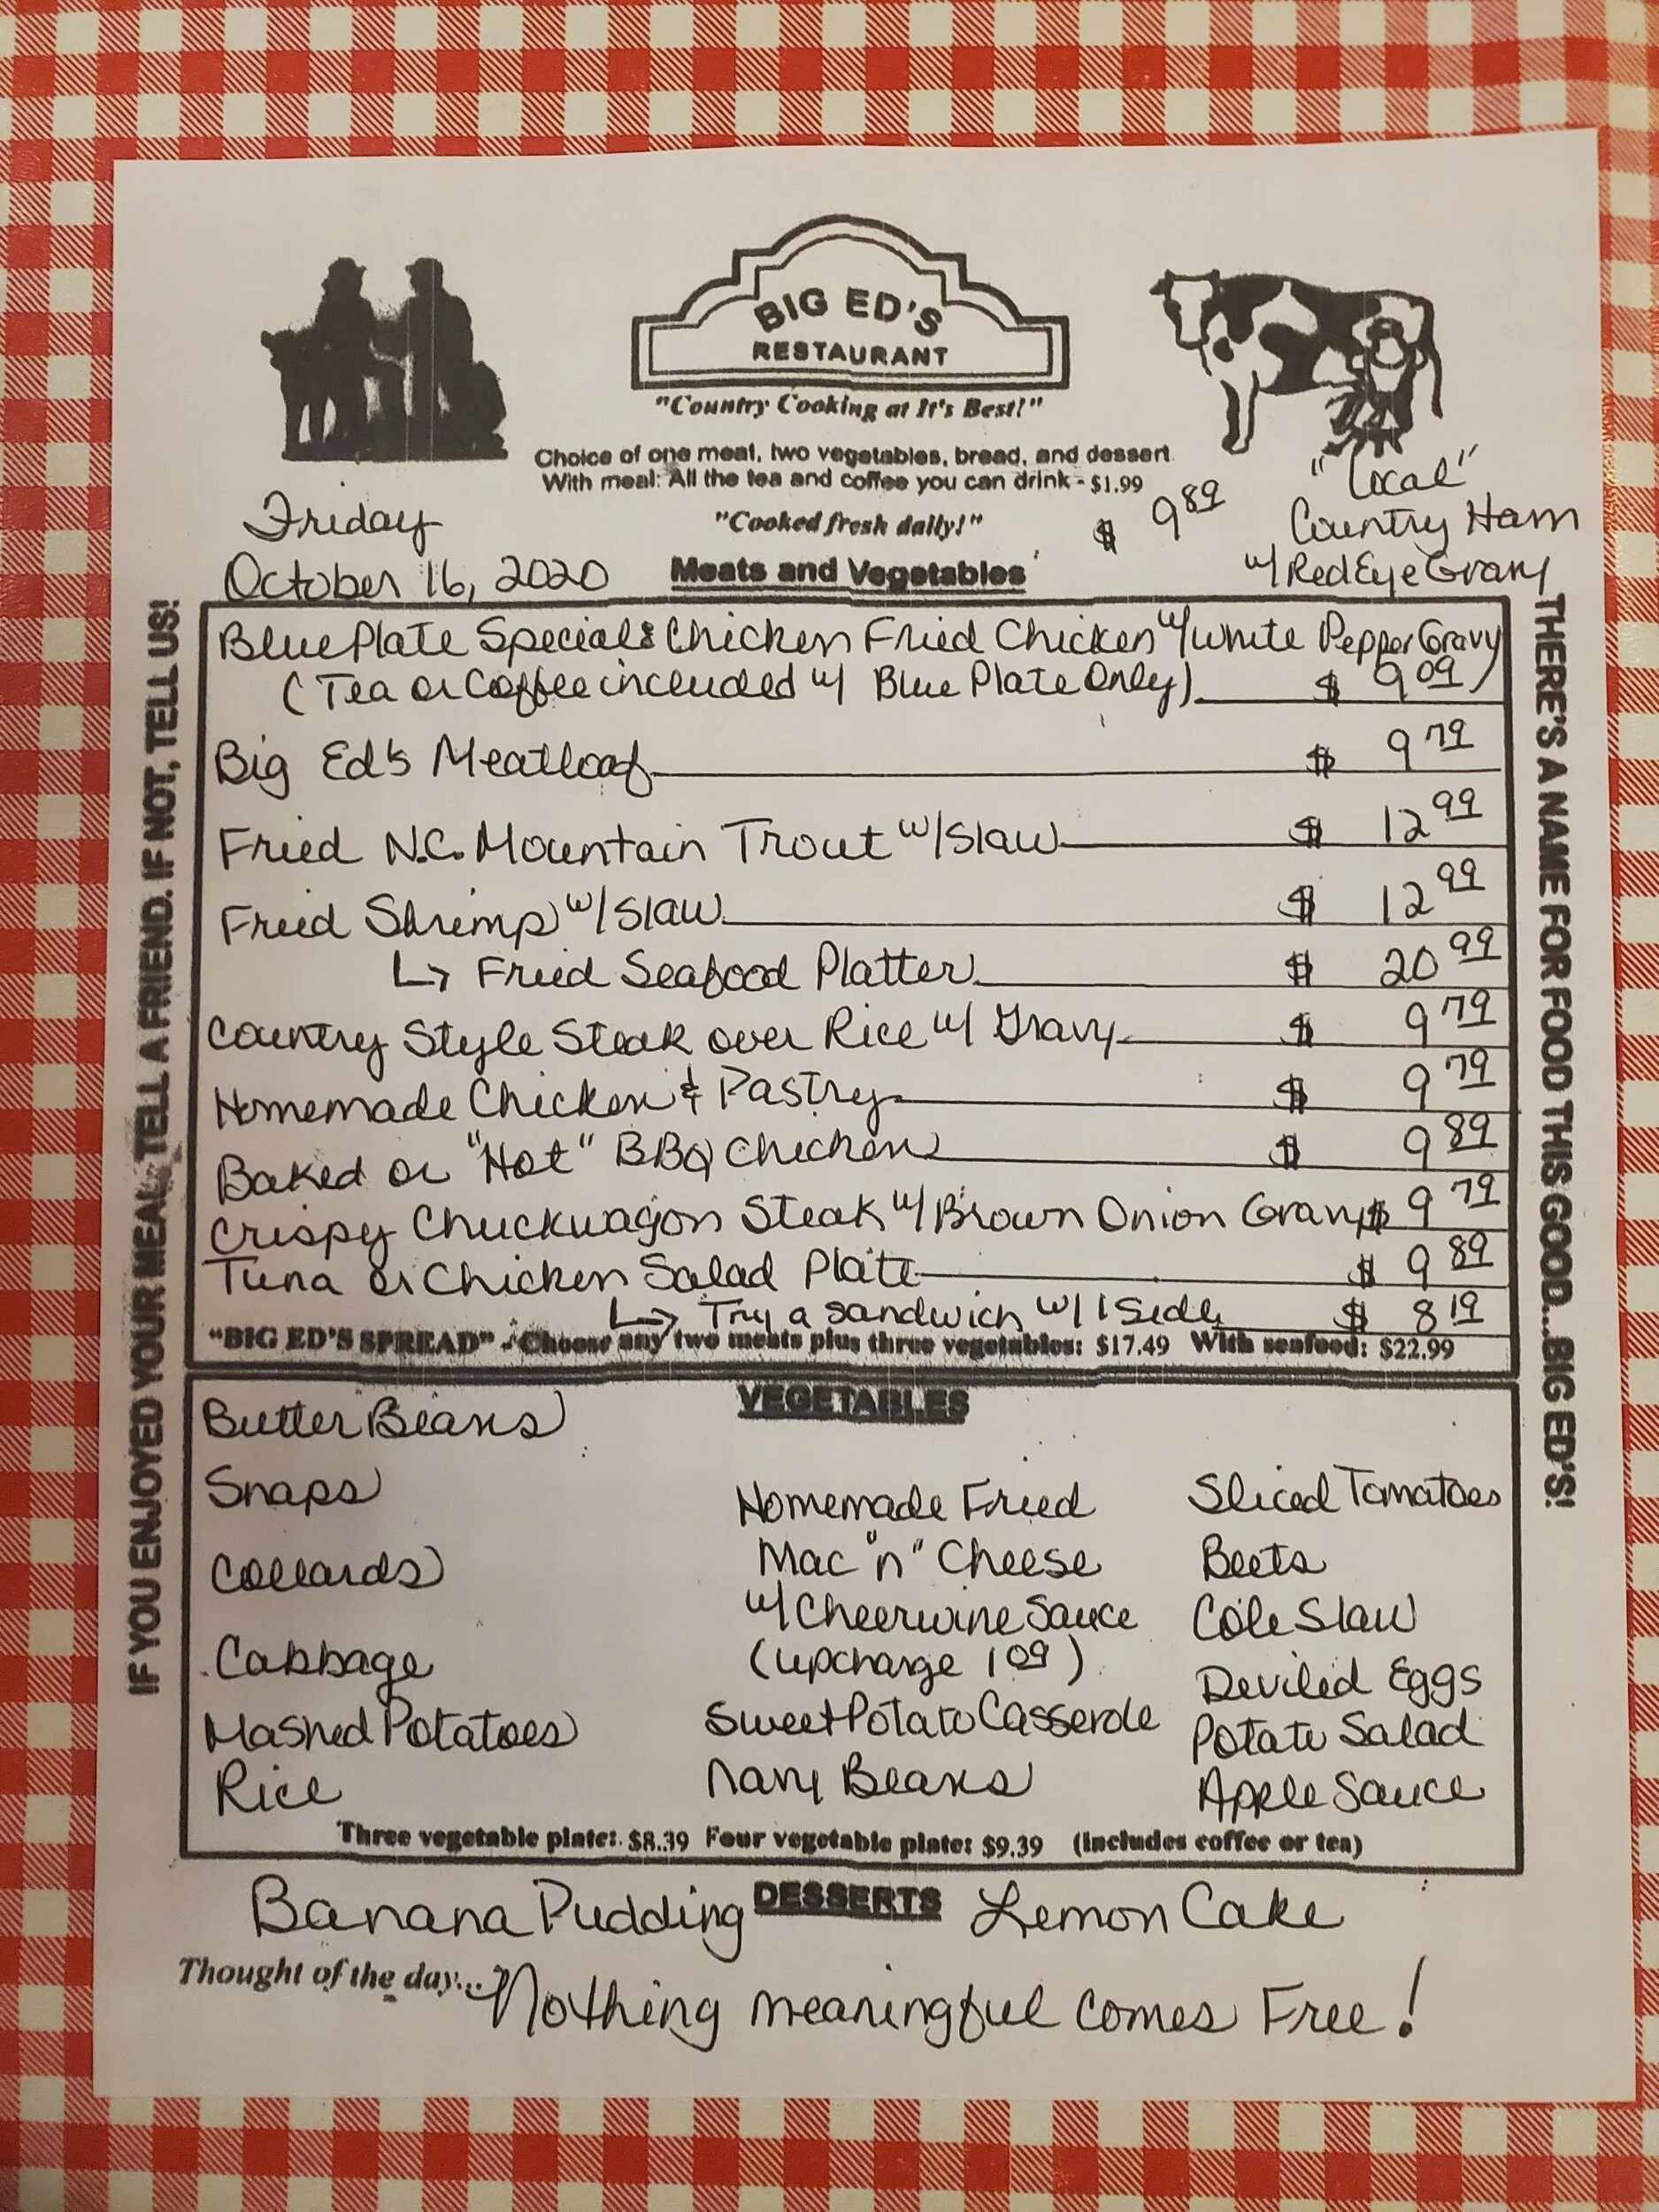 BIG ED'S
RESTAURANT
"Country Cooking at It's Best!"
Choice of one meat, two vegetables, bread, and dessert
With meal: All the tea and coffee you can drink - $1.99
"Cooked fresh daily!"
Friday
October 16, 2020
$ 9 89
"Local"
Country Ham
w/ Red Eye Gravy
Meats and Vegetables
Blue Plate Special: Chicken Fried Chicken w/ White Pepper Gravy
(Tea or Coffee included w/ Blue Plate Only) $ 9 09
Big Ed's Meatloaf $ 9 79
Fried N.C. Mountain Trout w/ Slaw $ 12 99
Fried Shrimp w/ Slaw $ 12 99
↳ Fried Seafood Platter $ 20 99
Country Style Steak over Rice w/ Gravy $ 9 79
Homemade Chicken & Pastry $ 9 79
Baked or "Hot" BBQ Chicken $ 9 89
Crispy Chuckwagon Steak w/ Brown Onion Gravy $ 9 79
Tuna or Chicken Salad Plate $ 9 89
↳ Try a sandwich w/ 1 Side $ 8 19
"BIG ED'S SPREAD" - Choose any two meats plus three vegetables: $17.49 With seafood: $22.99
VEGETABLES
Butter Beans
Snaps
Collards
Cabbage
Mashed Potatoes
Rice
Homemade Fried
Mac "n" Cheese
w/ Cheerwine Sauce
(upcharge 1 09)
Sweet Potato Casserole
Navy Beans
Sliced Tomatoes
Beets
Cole Slaw
Deviled Eggs
Potato Salad
Apple Sauce
Three vegetable plate: $8.39 Four vegetable plate: $9.39 (includes coffee or tea)
DESSERTS
Banana Pudding
Lemon Cake
Thought of the day... Nothing meaningful comes Free!
IF YOU ENJOYED YOUR MEAL, TELL A FRIEND. IF NOT, TELL US!
THERE'S A NAME FOR FOOD THIS GOOD...BIG ED'S!